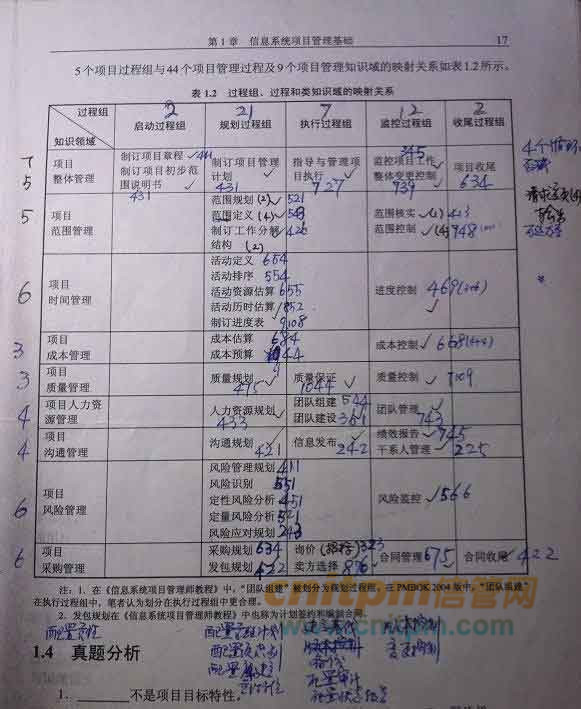 第1章 信息系统项目管理基础 17
5个项目过程组与44个项目管理过程及9个项目管理知识域的映射关系如表1.2所示。
表1.2 过程组、过程和类知识域的映射关系
2 21 7 12 2
过程组
知识领域
启动过程组 规划过程组 执行过程组 监控过程组 收尾过程组
7
5
项目
整体管理
制订项目章程 441
制订项目初步范
围说明书
431
制订项目管理
计划
431
指导与管理项
目执行
727
345
监控项目工作
整体变更控制
939
项目收尾
634
5
项目
范围管理
范围规划 (2) 521
范围定义 (4) 543
制订工作分解 426
结构 (2)
范围核实 (1) 423
范围控制 (4) 948
6
项目
时间管理
活动定义 654
活动排序 554
活动资源估算 655
活动历时估算 852
制订进度表 9108
进度控制 469
3
项目
成本管理
成本估算 684
成本预算 844
成本控制 668
3
项目
质量管理
质量规划 495
质量保证 1044
质量控制 7109
4
项目人力资
源管理
人力资源规划 433
团队组建 544
团队建设 361
团队管理 743
4
项目
沟通管理
沟通规划 421
信息发布 242
绩效报告 745
干系人管理 225
6
项目
风险管理
风险管理规划 411
风险识别 551
定性风险分析 451
定量风险分析 521
风险应对规划 243
风险监控 566
6
项目
采购管理
采购规划 634
发包规划 422
询价 323
卖方选择 896
合同管理 675
合同收尾 422
注：1. 在《信息系统项目管理师教程》中，“团队组建”被划分为规划过程组，在PMBOK 2004版中，“团队组建”
在执行过程组中，笔者认为划分在执行过程组中更合理。
2. 发包规划在《信息系统项目管理师教程》中也称为计划签约和编制合同。
cnitpm信管网
www.cnitpm.com
1.4 真题分析
1. ______不是项目目标特性。